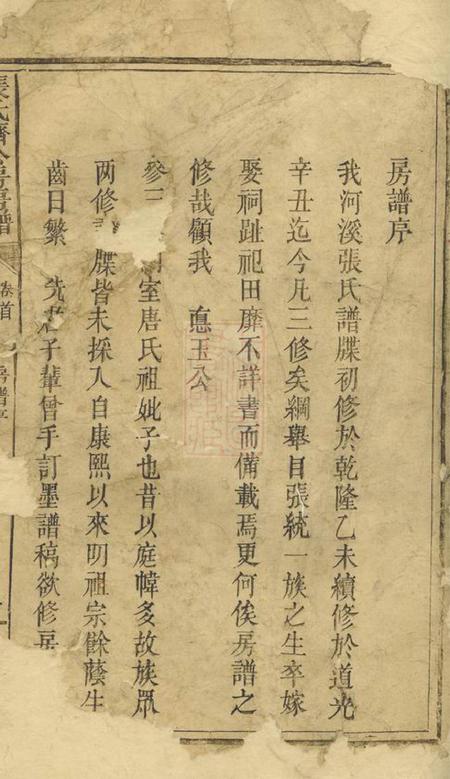 房譜序
我河溪張氏譜牒初修於乾隆乙未續修於道光
辛丑迄今凡三修矣綱舉目張統一族之生卒嫁
娶祠趾祀田靡不詳書而備載焉更何俟房譜之
修哉顧我 惪玉公
室唐氏祖妣子也昔以庭幃多故族眾
两修 牒皆未採入自康熙以來明祖宗餘蔭生
齒日繁 先 子輩曾手訂墨譜稿欲修房
張氏 公房房譜
卷首
房譜序